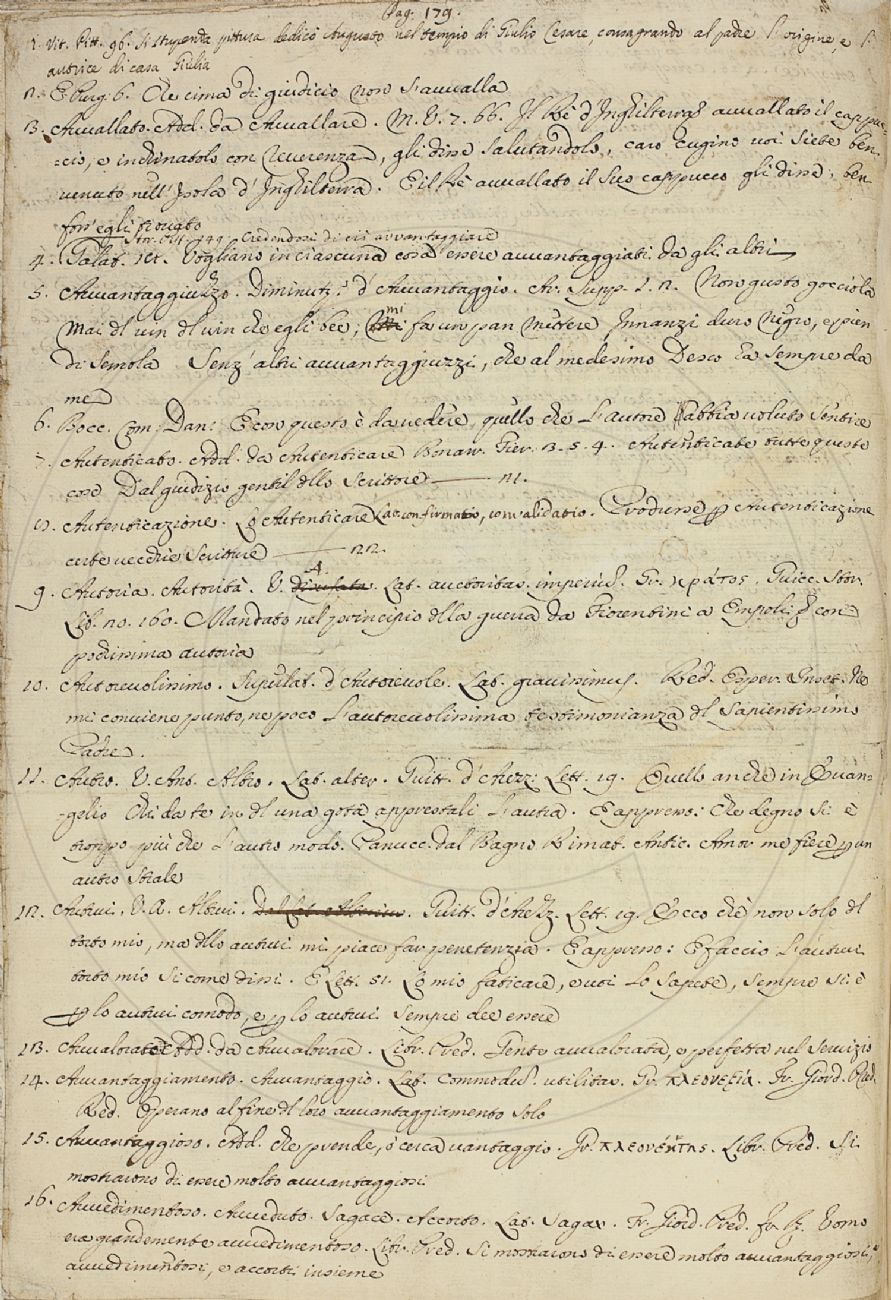 Pag. 179.
1. Vit. Pitt. 96. Sì stupenda pittura dedicò Augusto nel tempio di Giulio Cesare, consagrando al padre l'origine, e l'
autrice di casa Giulia
2. E Purg. 6. Che cima di giudicio non s'avvalla
3. Avvallato. Add. da Avvallare. M. V. 7. 66. Il Rè d'Inghilterra avvallato il cappuc-
=cio, e inchinatolo con reverenza, gli disse salutandolo, caro cugino voi siete ben
venuto nell'Isola d'Inghilterra. E il Rè avvallato il suo cappucco gli disse, ben
foss'egli trovato
Stor. Pist. 149. Credendosi di ciò avvantaggiare
4. Galat. 101. Vogliano in ciascuna cosa essere avvantaggiati da gli altri
5. Avvantaggiuzzo. Diminutz.º d'Avvantaggio. Ar. Supp. 1. 2. Non gusto gocciola
mai dl vin dl vin che egli bee; mi fa un pan mettere Innanzi duro nigro, e pien
di semola Senz'altri avvantaggiuzzi, che al medesimo Desco ha sempre da
me
6. Bocc. Com. Dan. E con questo è da vedere, quello che l'autore s'abbia voluto sentire
7. Autenticato. Add. da Autenticare Bonarr. Fier. 3. 5. 4. Autenticate tutte queste
cose Dal giudizio gentil dllo scrittore — 21.
8. Autenticazione. Lo Autenticare Lat. confirmatio, convalidatio. Produsse p Autenticazione
certe vecchie scritture — 22.
9. Autoria. Autorità. V. A. Lat. auctoritas. imperiũ. Gr. κράτος. Guicc. Stor.
Lib. 20. 160. Mandato nel principio dlla guerra da Fiorentini a Empoli con
pochissima autoria
10. Autorevolissimo. Superlat. d'Autorevole. Lat. gravissimus. Red. Esper. Inset. Ne
mi conviene punto, ne poco l'autorevolissima testimonianza dl sapientissimo
Padre.
11. Autro. V. Ant. Altro. Lat. alter. Guitt. d'Arezz. Lett. 19. Quello anche in Evan-
-gelio Chi da te in dl una gota apprestali l'autra. E appresso: Che degno si è
troppo più che l'autro modo. Fanucc. dal Bagno Rimat. Antic. Amor me fiere p un
autro strale
12. Autrui. V. A. Altrui. Guitt. d'Arezz. Lett. 19. Ecco chè non solo dl
torto mio, ma dllo autrui mi piace far penetenzia. E appresso: E faccio l'autrui
torto mio sicome dissi. E Lett. 51. Lo mio faticare, e voi lo sapete, sempre si è
p lo autrui comodo, e p lo autrui sempre dee essere
13. Avvalorato Add. da Avvalorare. Libr. Pred. Gente avvalorata, e perfetta nel servizio
14. Avvantaggiamento. Avvantaggio. Lat. commodũ. utilitas. Gr. πλεονεξία. Fr. Giord. Pred.
Red. Operano al fine dl loro avvantaggiamento solo
15. Avvantaggioso. Add. che prende, ò cerca vantaggio. Gr. πλεονέκτης. Libr. Pred. Si
mostrarono di essere molto avvantaggiosi
16. Avvedimentoso. Avveduto. Sagace. Accorto. Lat. sagax. Fr. Giord. Pred. Fr. R. Uomo
era grandemente avvedimentoso. Libr. Pred. Si mostrarono di essere molto avvantaggiosi,
avvedimentosi, e accorti insieme